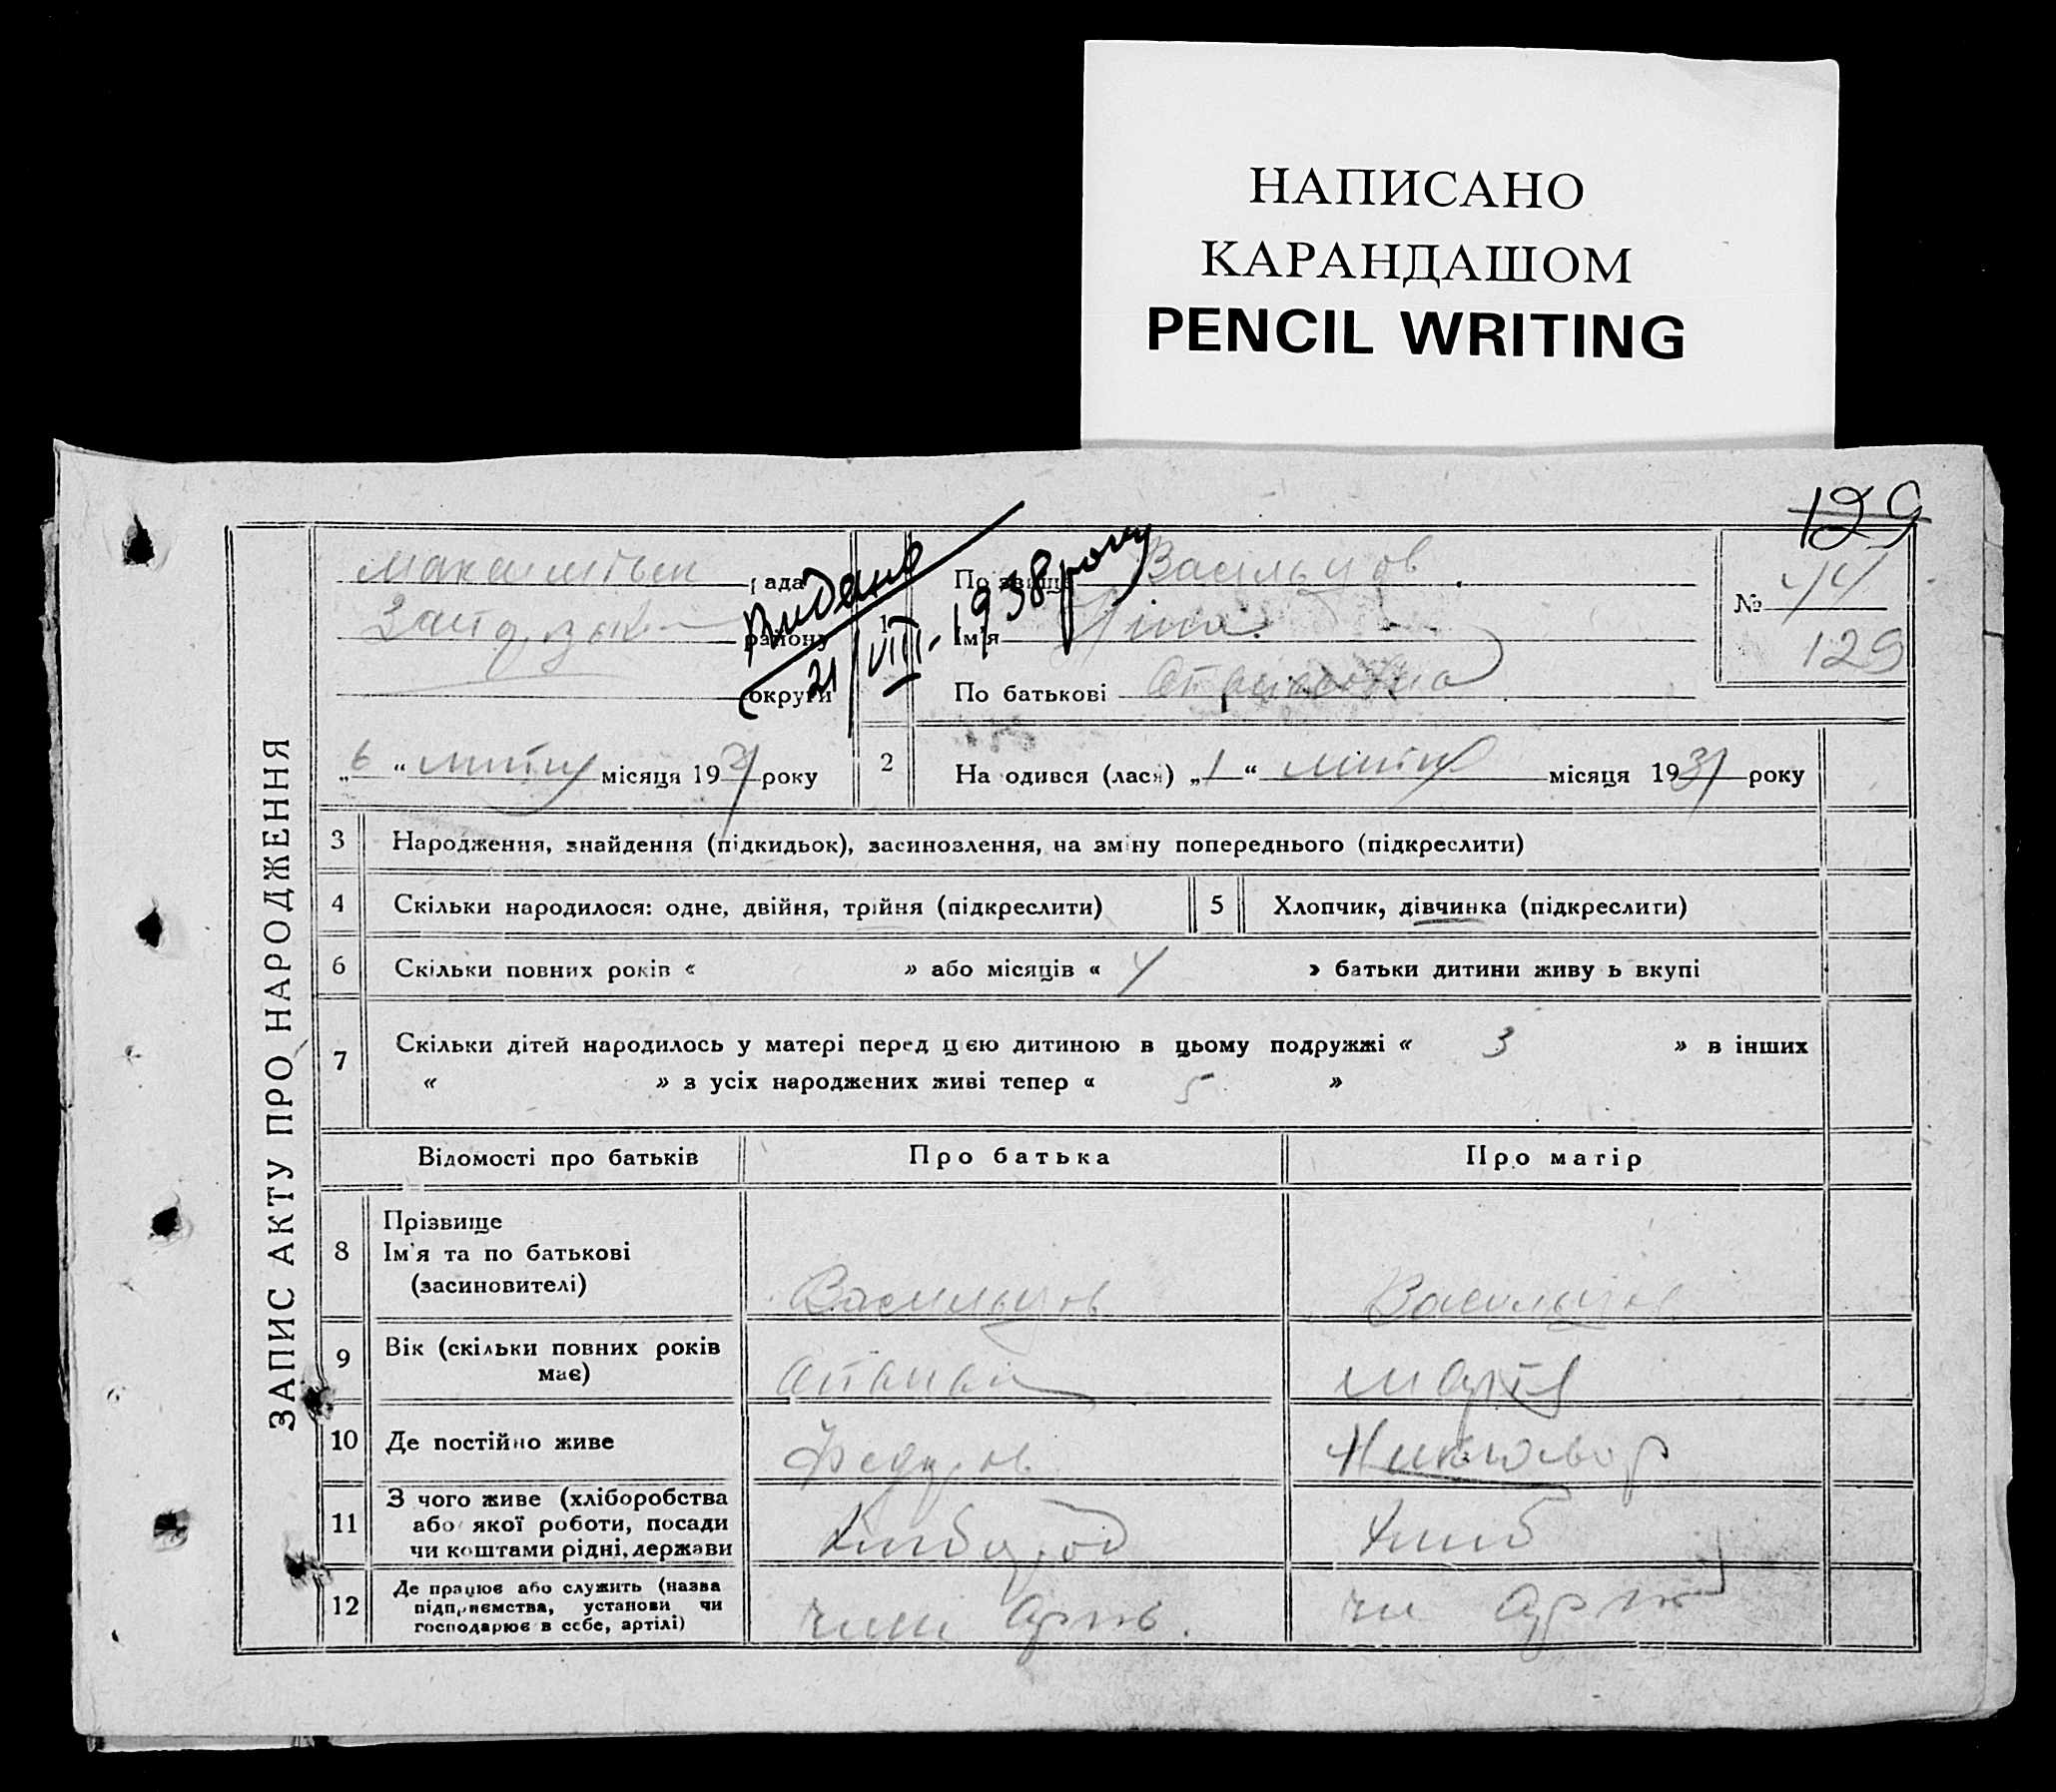 НАПИСАНО
КАРАНДАШОМ
PENCIL WRITING
129
ЗАПИС АКТУ ПРО НАРОДЖЕННЯ
рада
району
округи
Видано
21/VIII-1938 року
1
Прізвище Васильцов
Ім'я Ніна
По батькові
№ 44
129
„6“ лютий місяця 1931 року
2 Народився (лася) „1“ лютий місяця 1931 року
3 Народження, знайдення (підкидьок), засиновлення, на зміну попереднього (підкреслити)
4 Скільки народилося: одне, двійня, трійня (підкреслити)
5 Хлопчик, дівчинка (підкреслити)
6 Скільки повних років « » або місяців « » батьки дитини живуть вкупі
7 Скільки дітей народилось у матері перед цією дитиною в цьому подружжі « 3 » в інших
« » з усіх народжених живі тепер « 5 »
Відомості про батьків Про батька Про матір
8 Прізвище
Ім'я та по батькові
(засиновителі)
Васильцов Васильцов
9 Вік (скільки повних років
має)
Апанас Марія
10 Де постійно живе
Федоров
11 З чого живе (хліборобства
або якої роботи, посади
чи коштами рідні, держави
Хлібороб Хліб
12 Де працює або служить (назва
підприємства, установи чи
господарює в себе, артілі)
член